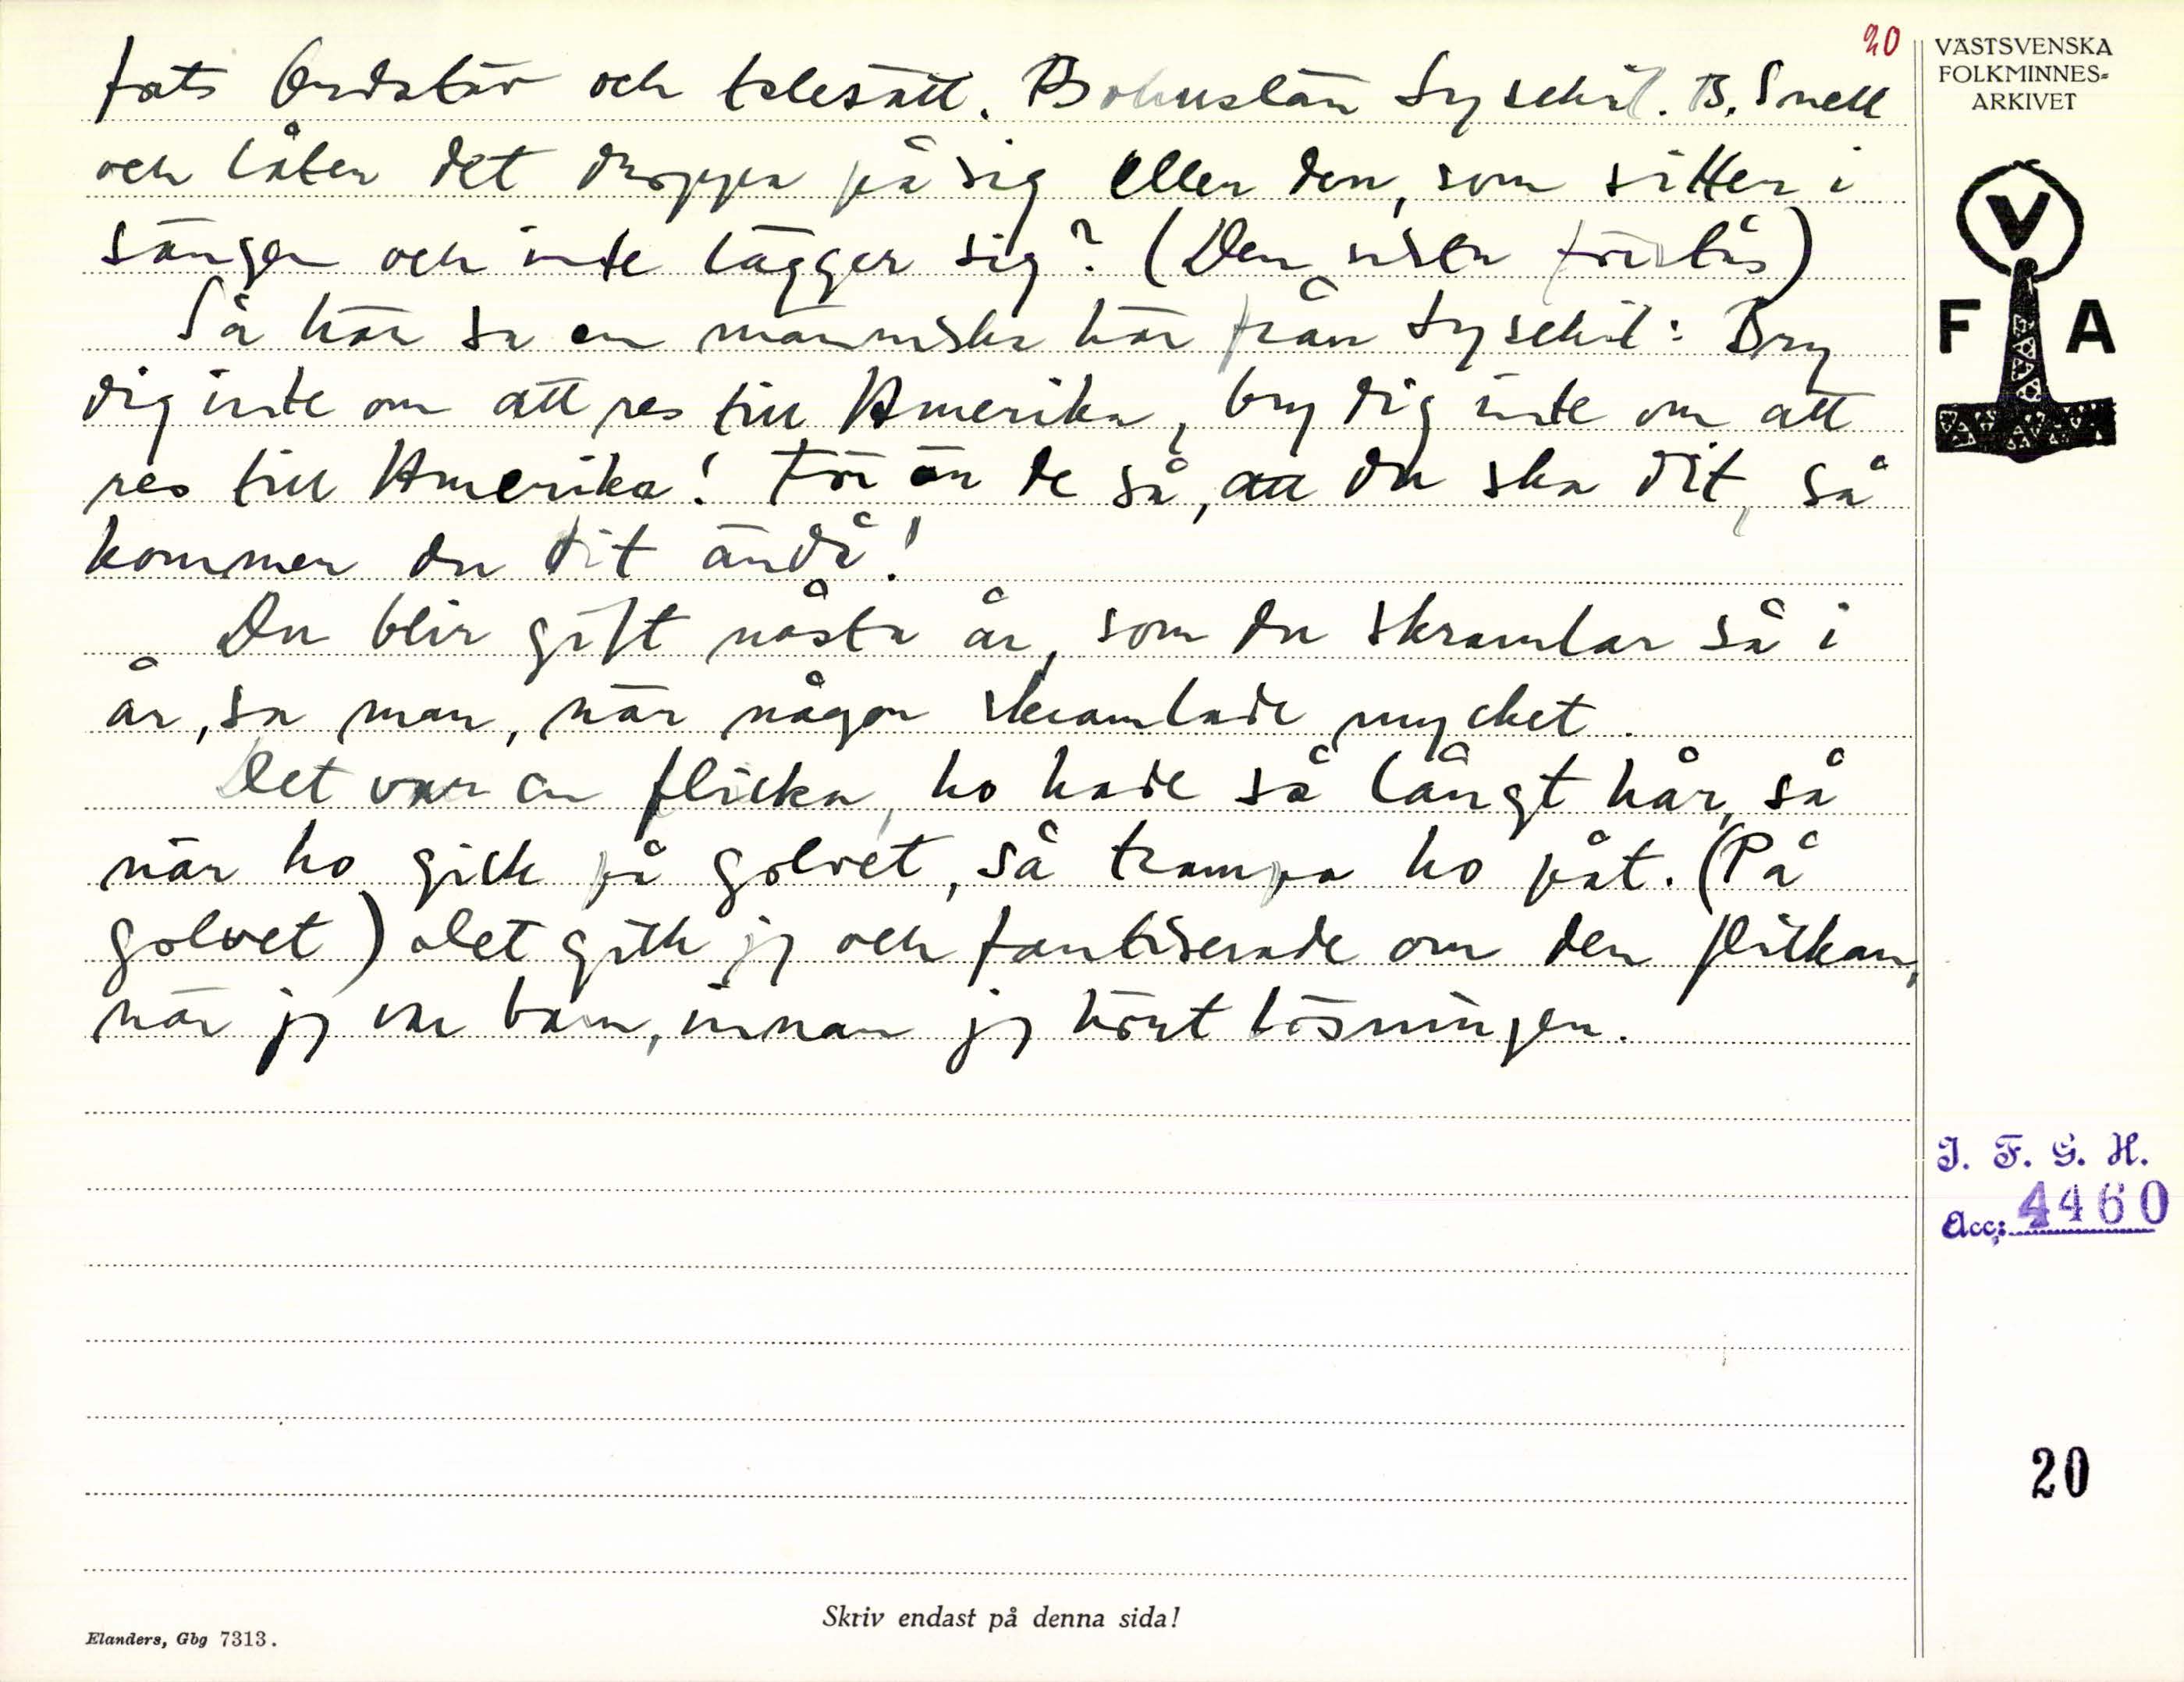 20
forts Ordstäv och talesätt. Bohuslän Lysekil. B. Snell
och låter det droppa på sig eller den, som sitter i
sängen och inte lägger sig? (Den sista förstås)
Så här sa en människa här från Lysekil: Bry
dig inte om att res till Amerika, bry dig inte om att
res till Amerika! För är de så, att du ska dit, så
kommer du dit ändå!
Du blir gift nästa år, som du skramlar så i
år, sa man, när någon skramlade mycket.
Det var en flicka, ho hade så långt hår, så
när ho gick på golvet, så trampa ho påt. (På
golvet) Det gick jg och fantiserade om den flickan,
när jg var barn, innan jg hört lösningen.
VÄSTSVENSKA
FOLKMINNES=
ARKIVET
V
F A
I. F. G. H.
Acc: 4460
20
Skriv endast på denna sida!
Elanders, Gbg 7313.